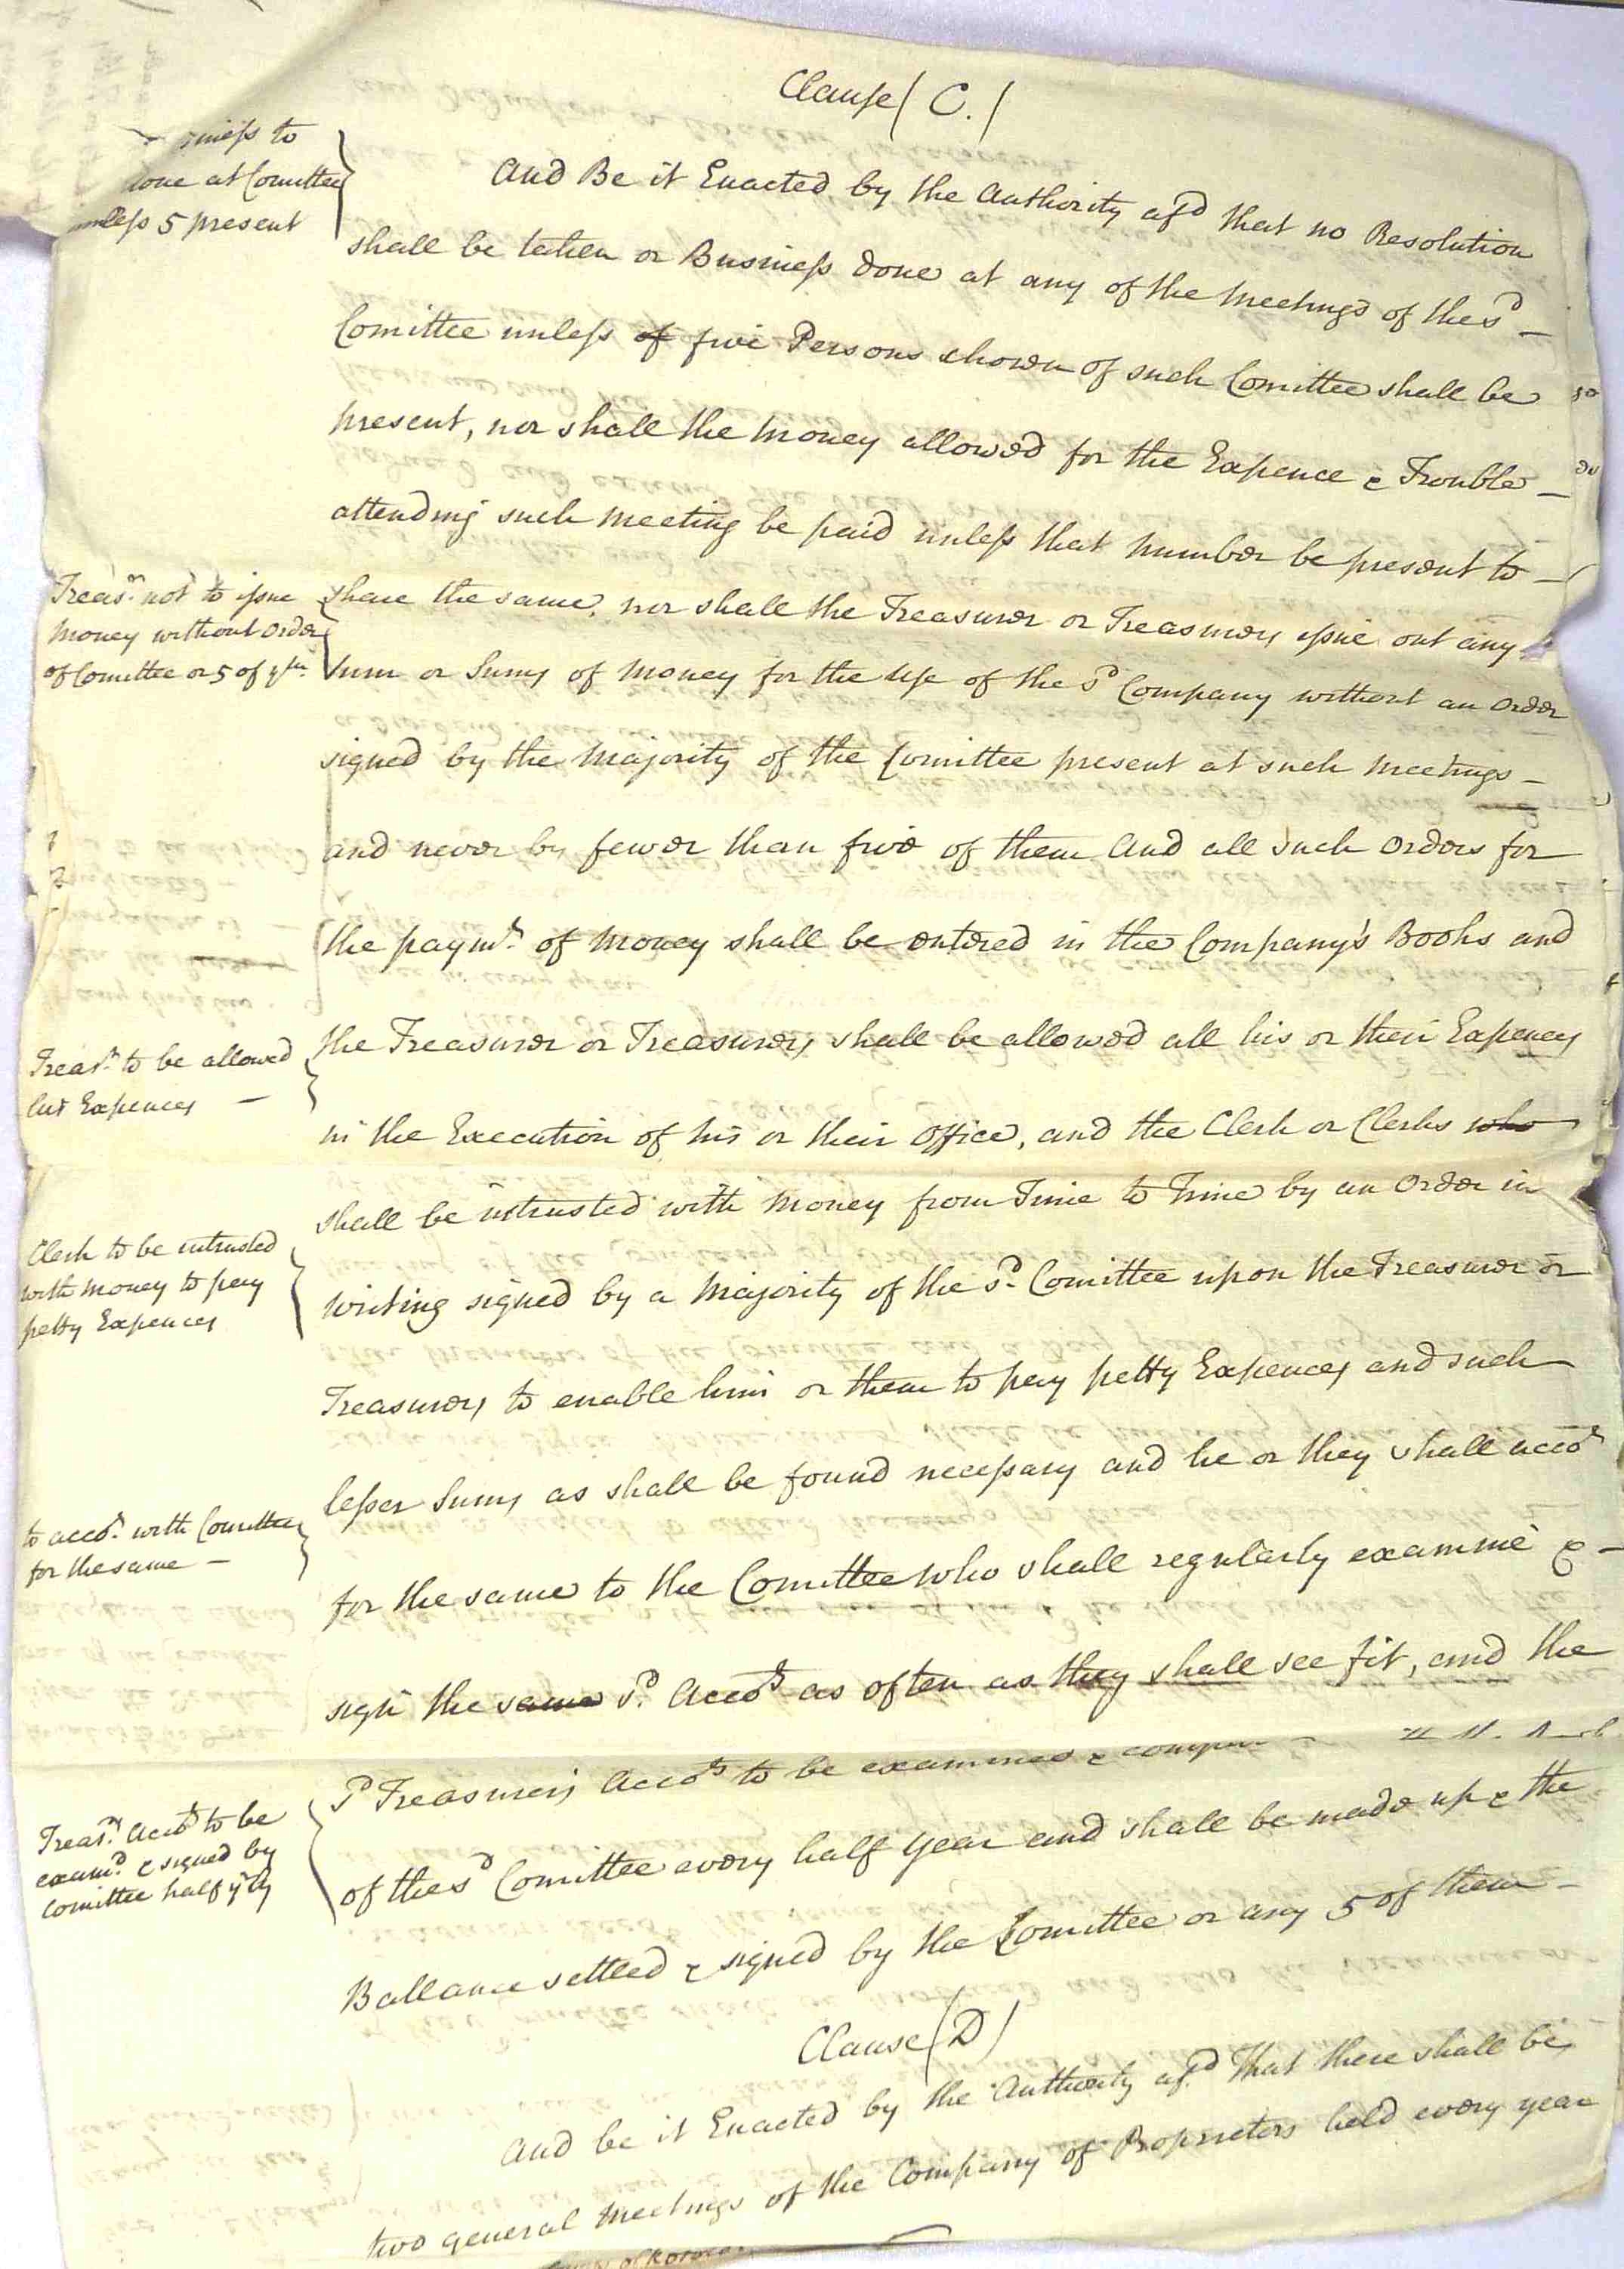 Clause (C.)
siness to
done at Comittee
unless 5 present
And Be it Enacted by the Authority afsd that no Resolution
shall be taken or Business done at any of the Meetings of the sd
Comittee unless of five Persons chosen of such Comittee shall be
present, nor shall the Money allowed for the Expence & Trouble
attending such Meeting be paid unless that Number be present to
Treasr. not to issue
Money without Order
of Comittee or 5 of ym.
share the same, nor shall the Treasurer or Treasurers issue out any
Sum or Sums of Money for the Use of the sd Company without an Order
signed by the Majority of the Comittee present at such Meetings
and never by fewer than five of them And all such Orders for
the paymt. of Money shall be entered in the Company's Books and
Treasr. to be allowed
his Expences —
the Treasurer or Treasurers shall be allowed all his or their Expences
in the Execution of his or their Office, and the Clerk or Clerks who
Clerk to be intrusted
with Money to pay
petty Expences
shall be intrusted with Money from Time to Time by an Order in
writing signed by a Majority of the sd. Comittee upon the Treasurer or
Treasurers to enable him or them to pay petty Expences and such
lesser Sums as shall be found necessary and he or they shall accot
to accot. with Comittee
for the same —
for the same to the Comittee who shall regularly examine &
sign the same sd. Accots as often as they shall see fit, and the
Treasrs. Accots to be
examd. & signed by
Comittee half yrly
sd Treasurers Accots to be examined &
of the sd Comittee every half Year and shall be made up & the
Ballance settled & signed by the Comittee or any 5 of them —
Clause (D)
And be it Enacted by the Authority afsd. That there shall be
two general Meetings of the Company of Proprietors held every year